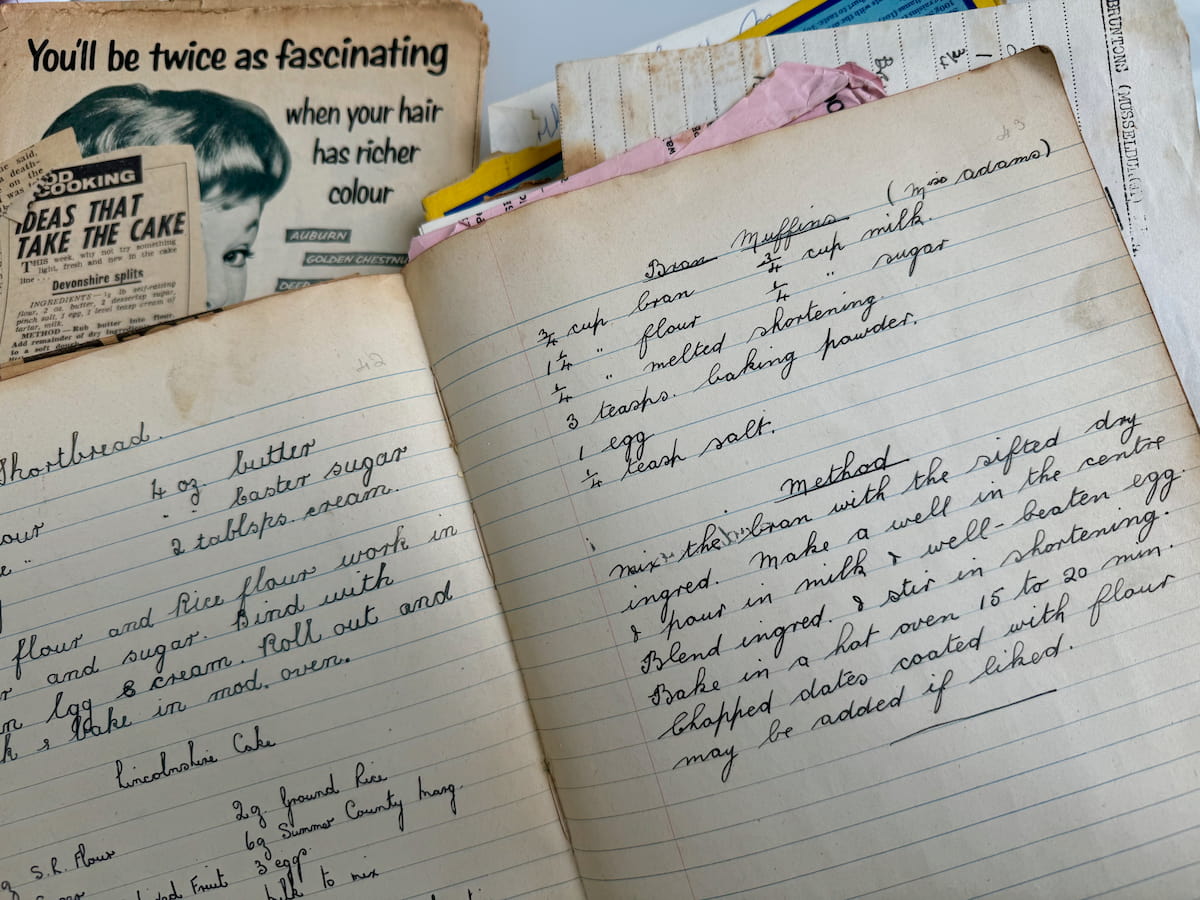 You'll be twice as fascinating
when your hair
has richer
colour
AUBURN
GOLDEN CHESTNU
DEEP
COOKING
IDEAS THAT
TAKE THE CAKE
THIS week, why not try something
light, fresh and new in the cake
line . . .
Devonshire splits
INGREDIENTS — ½ lb self-raising
flour, 2 oz. butter, 2 dessertsp sugar,
pinch salt, 1 egg, 1 level teasp cream of
tartar, milk.
METHOD — Rub butter into flour.
Add remainder of dry
to a soft
BRUNTONS (MUSSELBURGH)
42
Shortbread.
4 oz. butter
our
" " Caster sugar
2 tablsps. cream.
flour and Rice flour work in
and sugar. Bind with
Egg & cream. Roll out and
& bake in mod. oven.
Lincolnshire Cake
2oz Ground Rice
S.R. Flour
6oz Summer County Marg.
Fruit 3 eggs.
milk to mix
43
Bran Muffins (Miss Adams)
¾ cup bran ¾ cup milk.
1¼ " flour ¼ " sugar
¼ " melted shortening.
3 teasps. baking powder.
1 egg
¼ teasp salt.
Method
Mix the bran with the sifted dry
ingred. Make a well in the centre
& pour in milk & well-beaten egg.
Blend ingred. & stir in shortening.
Bake in a hot oven 15 to 20 min.
Chopped dates coated with flour
may be added if liked.